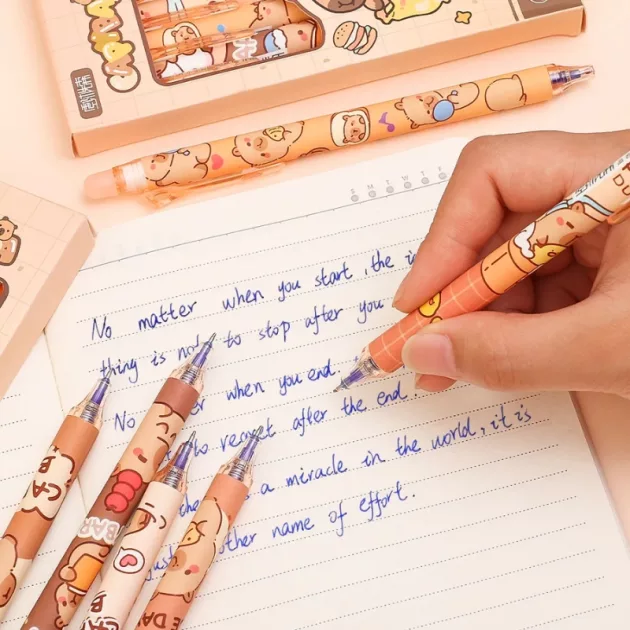 S M T W T F
No matter when you start, the
thing is not to stop after you
No when you end.
to regret after the end.
the a miracle in the world, it is
just other name of effort.
CA
BA
BAR